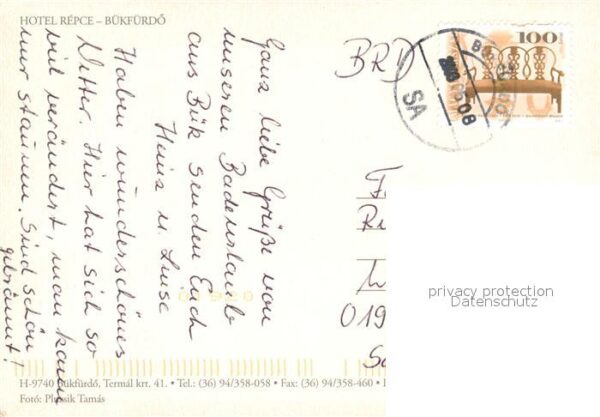 HOTEL RÉPCE – BÜKFÜRDŐ
Ganz liebe Grüße von
unserem Badeurlaub
aus Bük senden Euch
Heinz u. Luise
Haben wunderschönes
Wetter. Hier hat sich so
viel verändert, man kann
nur staunen. Sind schön
gebräunt!
BRD
100
08
SA
019
privacy protection
Datenschutz
H-9740 Bükfürdő, Termál krt. 41. • Tel.: (36) 94/358-058 • Fax: (36) 94/358-460 •
Fotó: Tamás